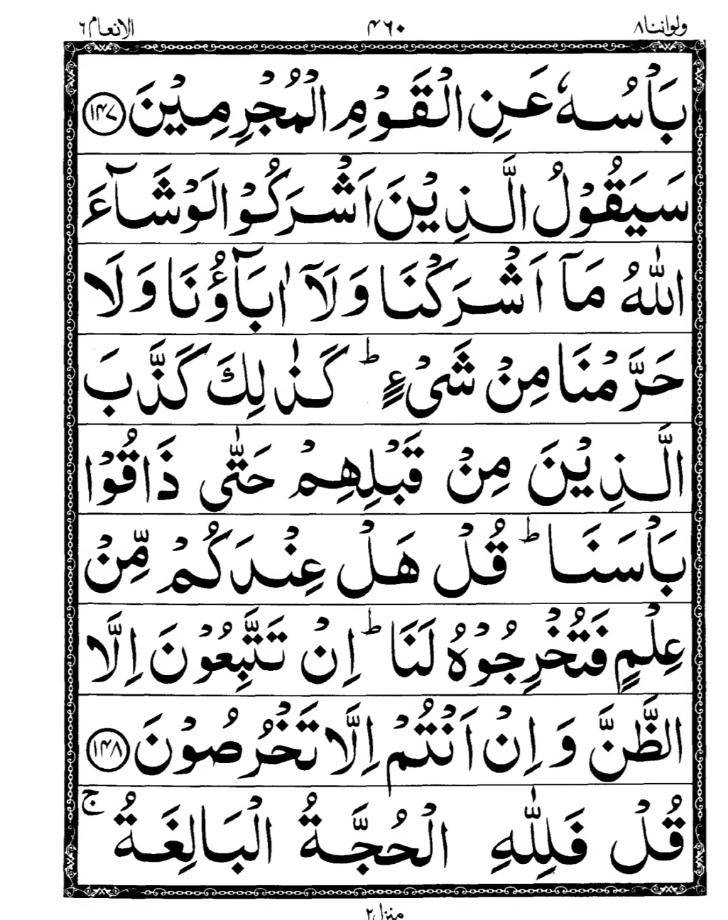 ولواننا۸ ۴۶۰ الانعام۶
بَاْسُهٗ عَنِ الْقَوْمِ الْمُجْرِمِيْنَ ۱۴۷
سَيَقُوْلُ الَّذِيْنَ اَشْرَكُوْا لَوْ شَآءَ
اللّٰهُ مَآ اَشْرَكْنَا وَلَآ اٰبَآؤُنَا وَلَا
حَرَّمْنَا مِنْ شَیْءٍ ؕ كَذٰلِكَ كَذَّبَ
الَّذِيْنَ مِنْ قَبْلِهِمْ حَتّٰى ذَاقُوْا
بَاْسَنَا ؕ قُلْ هَلْ عِنْدَكُمْ مِّنْ
عِلْمٍ فَتُخْرِجُوْهُ لَنَا ؕ اِنْ تَتَّبِعُوْنَ اِلَّا
الظَّنَّ وَاِنْ اَنْتُمْ اِلَّا تَخْرُصُوْنَ ۱۴۸
قُلْ فَلِلّٰهِ الْحُجَّةُ الْبَالِغَةُ ۚ
منزل۲